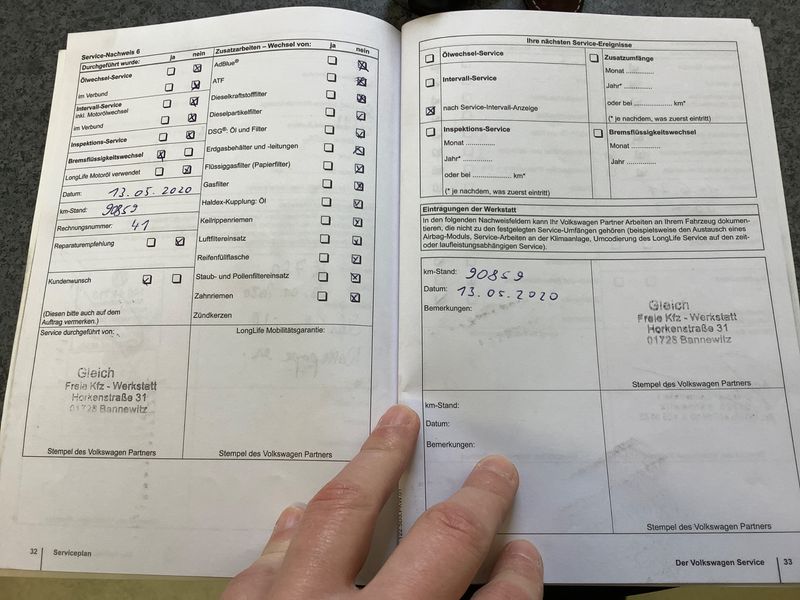 Service-Nachweis 6
Durchgeführt wurde: ja nein
Ölwechsel-Service
im Verbund
Intervall-Service
inkl. Motorölwechsel
im Verbund
Inspektions-Service
Bremsflüssigkeitswechsel
LongLife Motoröl verwendet
Datum: 13.05.2020
km-Stand: 90859
Rechnungsnummer: 41
Reparaturempfehlung
Kundenwunsch
(Diesen bitte auch auf dem
Auftrag vermerken.)
Service durchgeführt von:
Gleich
Freie Kfz - Werkstatt
Horkenstraße 31
01728 Bannewitz
Stempel des Volkswagen Partners
Zusatzarbeiten – Wechsel von: ja nein
AdBlue®
ATF
Dieselkraftstofffilter
Dieselpartikelfilter
DSG®: Öl und Filter
Erdgasbehälter und -leitungen
Flüssiggasfilter (Papierfilter)
Gasfilter
Haldex-Kupplung: Öl
Keilrippenriemen
Luftfiltereinsatz
Reifenfüllflasche
Staub- und Pollenfiltereinsatz
Zahnriemen
Zündkerzen
LongLife Mobilitätsgarantie:
Stempel des Volkswagen Partners
32 Serviceplan
Ihre nächsten Service-Ereignisse
Ölwechsel-Service
Intervall-Service
nach Service-Intervall-Anzeige
Inspektions-Service
Monat .............
Jahr* .............
oder bei .................. km*
(* je nachdem, was zuerst eintritt)
Zusatzumfänge
Monat .............
Jahr* .............
oder bei .................. km*
(* je nachdem, was zuerst eintritt)
Bremsflüssigkeitswechsel
Monat .............
Jahr .............
Eintragungen der Werkstatt
In den folgenden Nachweisfeldern kann Ihr Volkswagen Partner Arbeiten an Ihrem Fahrzeug dokumen-
tieren, die nicht zu den festgelegten Service-Umfängen gehören (beispielsweise den Austausch eines
Airbag-Moduls, Service-Arbeiten an der Klimaanlage, Umcodierung des LongLife Service auf den zeit-
oder laufleistungsabhängigen Service).
km-Stand: 90859
Datum: 13.05.2020
Bemerkungen:
Gleich
Freie Kfz - Werkstatt
Horkenstraße 31
01728 Bannewitz
Stempel des Volkswagen Partners
km-Stand:
Datum:
Bemerkungen:
Stempel des Volkswagen Partners
Der Volkswagen Service 33